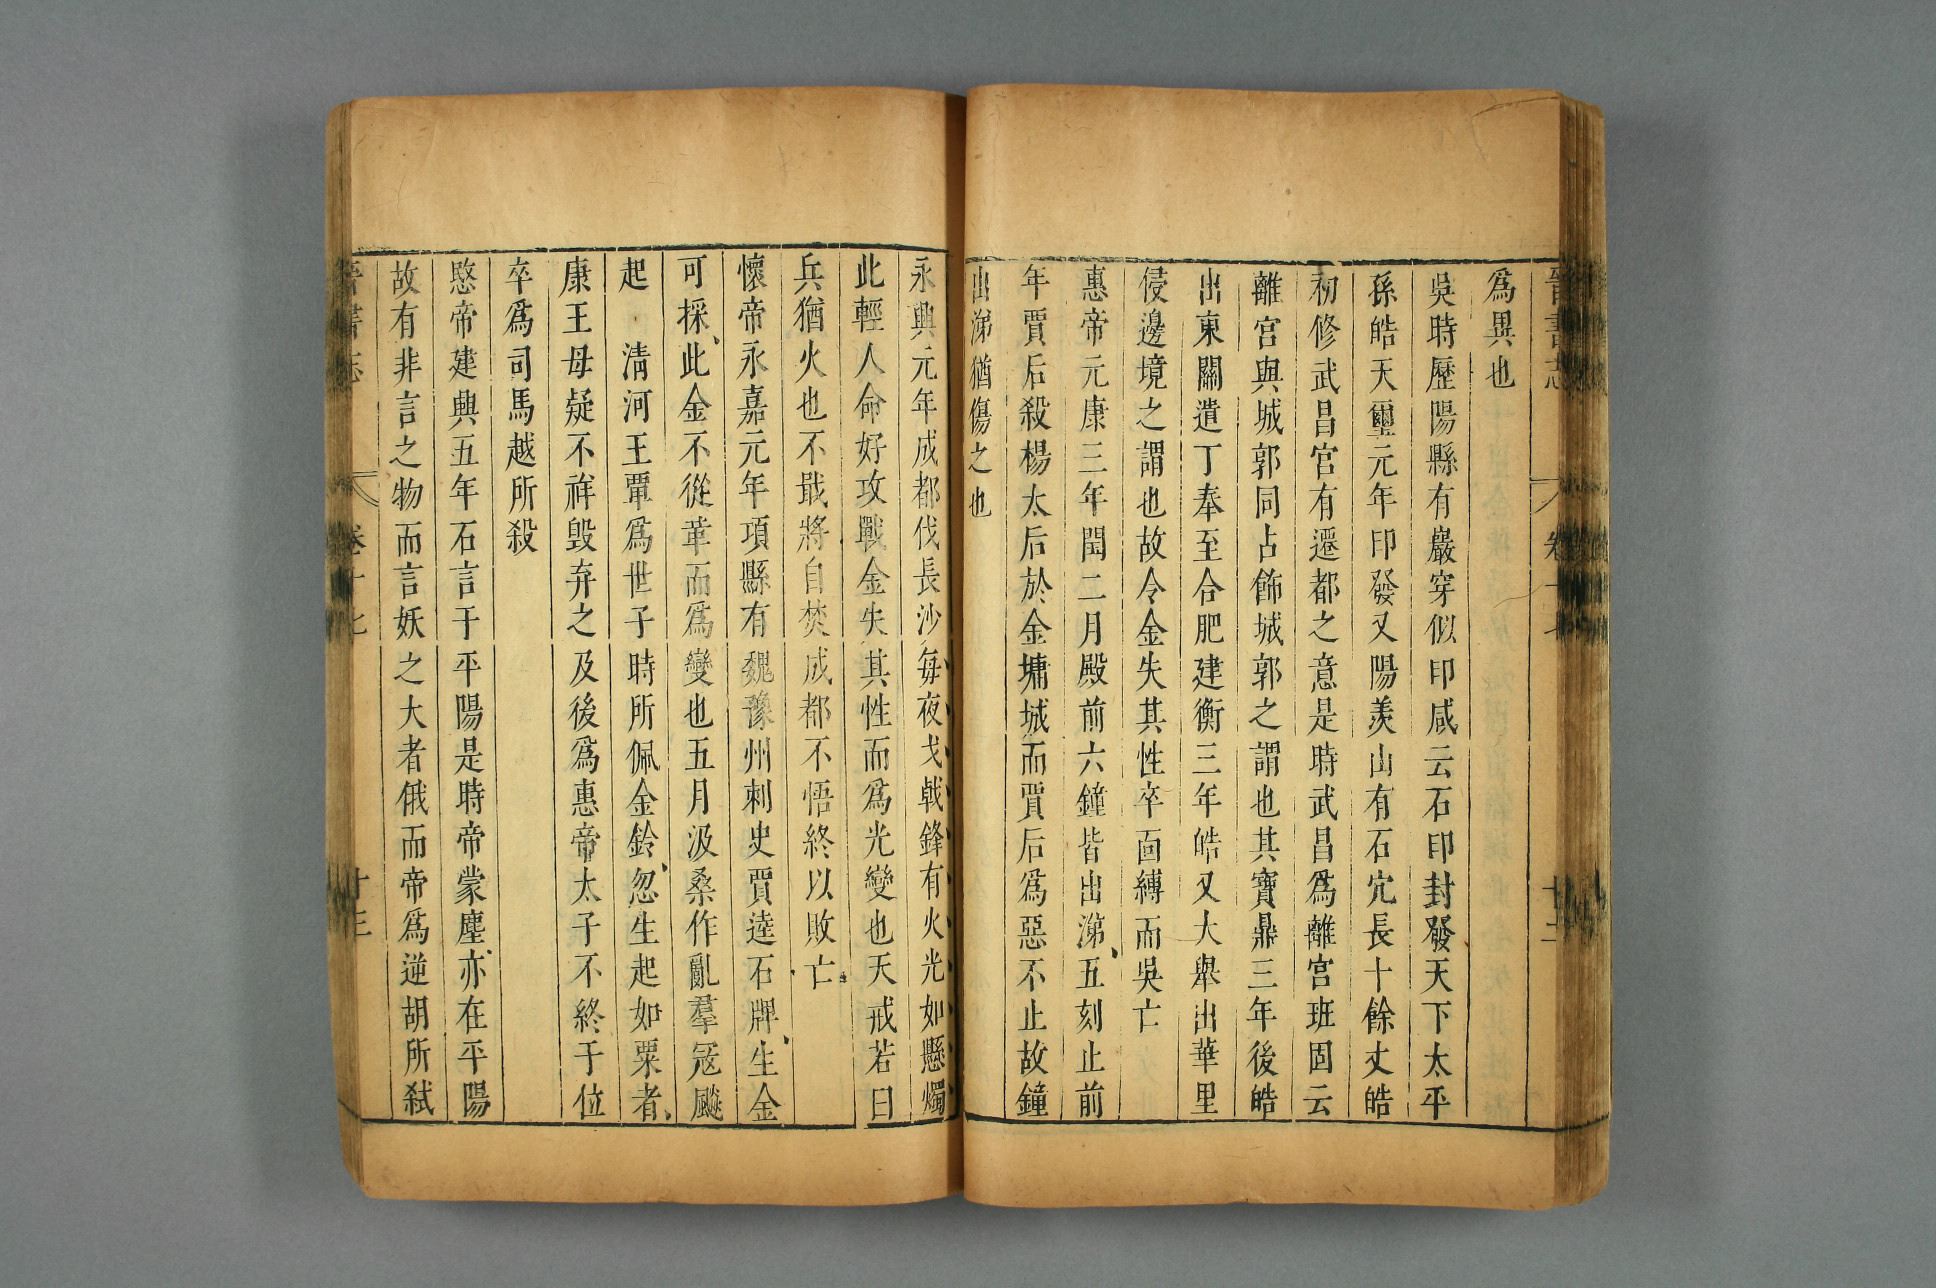 晉書志 卷十七 十二
爲異也
吳時歷陽縣有巖穿似印咸云石印封發天下太平
孫皓天璽元年印發又陽羨山有石穴長十餘丈皓
初修武昌宮有遷都之意是時武昌爲離宮班固云
離宮與城郭同占飾城郭之謂也其寶鼎三年後皓
出東關遣丁奉至合肥建衡三年皓又大舉出華里
侵邊境之謂也故令金失其性卒面縛而吳亡
惠帝元康三年閏二月殿前六鐘皆出涕五刻止前
年賈后殺楊太后於金墉城而賈后爲惡不止故鐘
出涕猶傷之也
永興元年成都伐長沙每夜戈戟鋒有火光如懸燭
此輕人命好攻戰金失其性而爲光變也天戒若曰
兵猶火也不戢將自焚成都不悟終以敗亡
懷帝永嘉元年項縣有魏豫州刺史賈逵石牌生金
可採此金不從革而爲變也五月汲桑作亂羣寇飈
起 清河王覃爲世子時所佩金鈴忽生起如粟者
康王母疑不祥毀弃之及後爲惠帝太子不終于位
卒爲司馬越所殺
愍帝建興五年石言于平陽是時帝蒙塵亦在平陽
故有非言之物而言妖之大者俄而帝爲逆胡所弒
晉書志 卷十七 十三